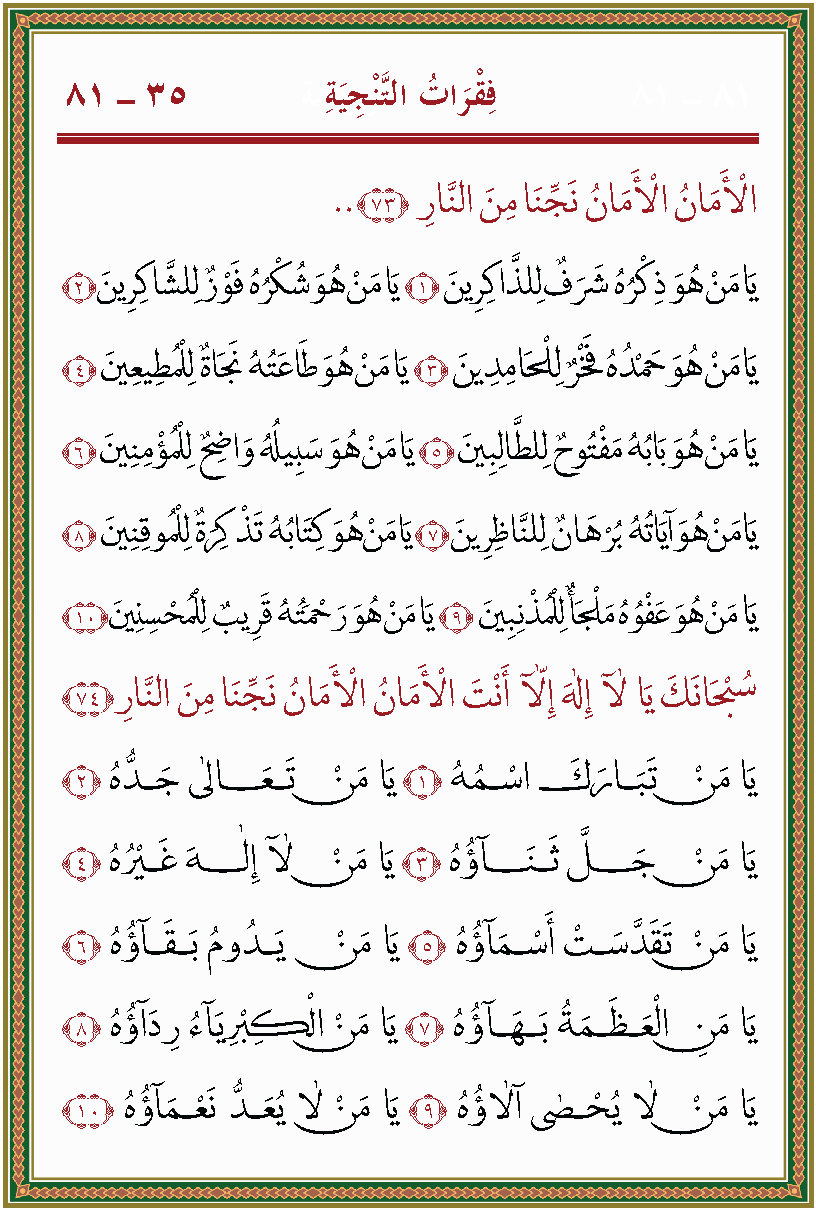 فِقْرَاتُ التَّنْجِيَةِ ٣٥ ـ ٨١
الْأَمَانُ الْأَمَانُ نَجِّنَا مِنَ النَّارِ ﴿٧٣﴾..
يَا مَنْ هُوَ ذِكْرُهُ شَرَفٌ لِلذَّاكِرِينَ ﴿١﴾ يَا مَنْ هُوَ شُكْرُهُ فَوْزٌ لِلشَّاكِرِينَ ﴿٢﴾
يَا مَنْ هُوَ حَمْدُهُ فَخْرٌ لِلْحَامِدِينَ ﴿٣﴾ يَا مَنْ هُوَ طَاعَتُهُ نَجَاةٌ لِلْمُطِيعِينَ ﴿٤﴾
يَا مَنْ هُوَ بَابُهُ مَفْتُوحٌ لِلطَّالِبِينَ ﴿٥﴾ يَا مَنْ هُوَ سَبِيلُهُ وَاضِحٌ لِلْمُؤْمِنِينَ ﴿٦﴾
يَا مَنْ هُوَ آيَاتُهُ بُرْهَانٌ لِلنَّاظِرِينَ ﴿٧﴾ يَا مَنْ هُوَ كِتَابُهُ تَذْكِرَةٌ لِلْمُوقِنِينَ ﴿٨﴾
يَا مَنْ هُوَ عَفْوُهُ مَلْجَأٌ لِلْمُذْنِبِينَ ﴿٩﴾ يَا مَنْ هُوَ رَحْمَتُهُ قَرِيبٌ لِلْمُحْسِنِينَ ﴿١٠﴾
سُبْحَانَكَ يَا لَآ إِلٰهَ إِلَّآ أَنْتَ الْأَمَانُ الْأَمَانُ نَجِّنَا مِنَ النَّارِ ﴿٧٤﴾
يَا مَنْ تَبَارَكَ اسْمُهُ ﴿١﴾ يَا مَنْ تَعَالٰى جَدُّهُ ﴿٢﴾
يَا مَنْ جَلَّ ثَنَآؤُهُ ﴿٣﴾ يَا مَنْ لَآ إِلٰهَ غَيْرُهُ ﴿٤﴾
يَا مَنْ تَقَدَّسَتْ أَسْمَآؤُهُ ﴿٥﴾ يَا مَنْ يَدُومُ بَقَآؤُهُ ﴿٦﴾
يَا مَنِ الْعَظَمَةُ بَهَآؤُهُ ﴿٧﴾ يَا مَنْ الْكِبْرِيَآءُ رِدَآؤُهُ ﴿٨﴾
يَا مَنْ لَا يُحْصٰى آلَاؤُهُ ﴿٩﴾ يَا مَنْ لَا يُعَدُّ نَعْمَآؤُهُ ﴿١٠﴾